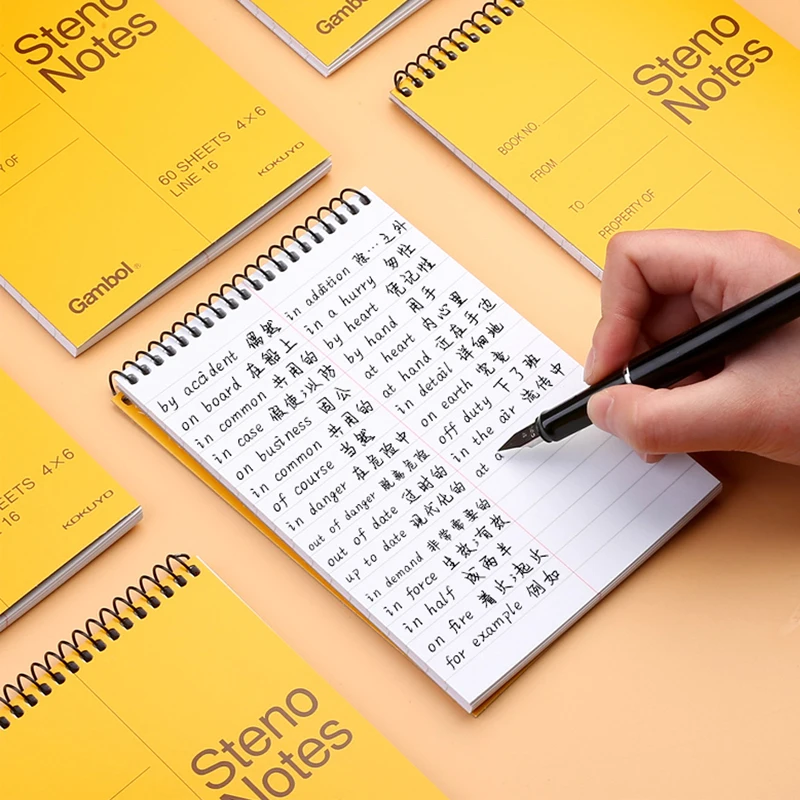 Steno
Notes
60 SHEETS 4×6
LINE 16
KOKUYO
Gambol
Gambol
Steno
Notes
BOOK NO.
FROM
TO
PROPERTY OF
by accident 偶然
on board 在船上
in common 共用的
in case 假使;以防
on business 因公
in common 共用的
of course 当然
in danger 在危险中
out of danger 脱离危险
out of date 过时的
up to date 现代化的
in demand 非常需要的
in force 生效;有效
in half 成两半
on fire 着火;起火
for example 例如
in addition 除…之外
in a hurry 匆忙
by heart 凭记性
by hand 用手
at heart 内心里
at hand 近在手边
in detail 详细地
on earth 究竟
off duty 下了班
in the air 流传中
at
4×6
16
KOKUYO
Steno
Notes